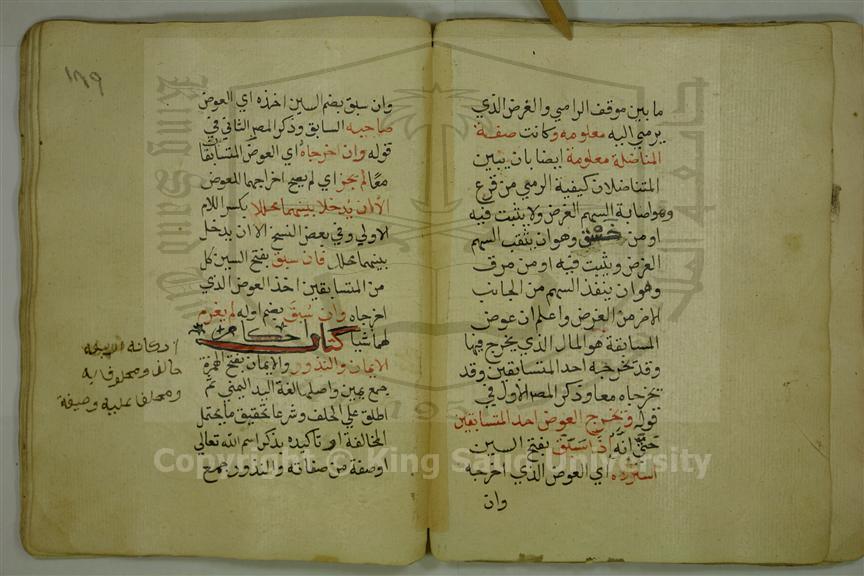 ما بين موقف الرامي والغرض الذي
يرمي اليه معلومه وكانت صفة
المناضلة معلومة ايضا بان يبين
المتناضلان كيفية الرمي من قرع
وهو اصابة السهم الغرض ولا يثبت فيه
او من خسق وهو ان يثقب السهم
الغرض ويثبت فيه او من مرق
وهو ان ينفذ السهم من الجانب
الاخر من الغرض واعلم ان عوض
المسابقة هو المال الذي يخرج فيها
وقد يخرجه احد المتسابقين وقد
يخرجاه معا وذكر المصر الاول في
قوله ويخرج العوض احد المتسابقين
حتي انه اذا سبق بفتح السين
استرده اي العوض الذي اخرجه
وان
١٨٩
وان سبق بضم السين اخذه اي العوض
صاحبه السابق وذكر المصر الثاني في
قوله وان اخرجاه اي العوض المتسابقان
معا لم يجز اي لم يصح اخراجهما للعوض
الا ان يدخلا بينهما محللا بكسر اللام
الاولي وفي بعض النسخ الا ان يدخل
بينهما محلل فان سبق بفتح السين كل
من المتسابقين اخذ العوض الذي
اخرجاه وان سبق بضم اوله لم يغرم
لهما شيا كتاب احكام
الايمان والنذور والايمان بفتح الهمزة
جمع يمين واصلها لغة اليد اليمني ثم
اطلق علي الحلف وشرعا تحقيق ما يحتمل
المخالفة او تاكيده بذكر اسم الله تعالي
او صفة من صفاته والنذور جمع
اركانه اربعه
حالف ومحلوف به
ومحلوف عليه وصيغة
Copyright © King Saud University
جامعة الملك
King Saud
1957